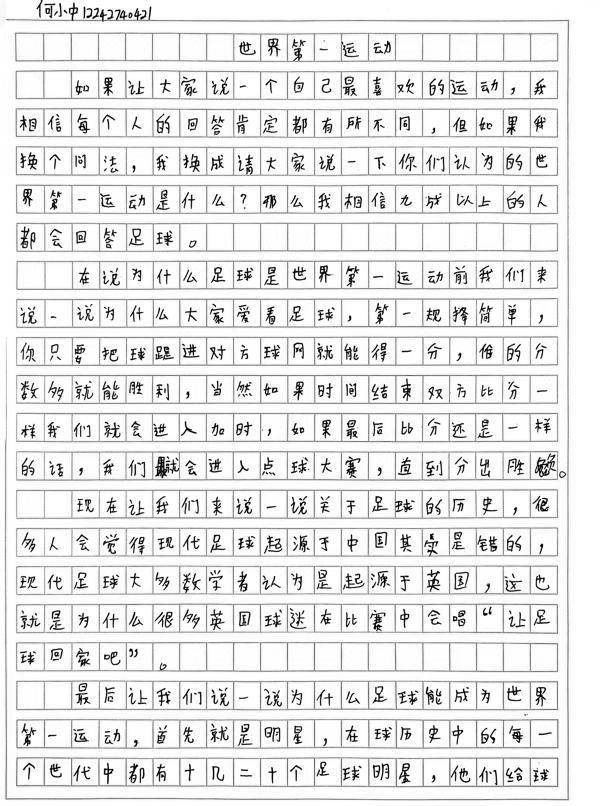 何小中12242740421
世界第一运动
如果让大家说一个自己最喜欢的运动，我
相信每个人的回答肯定都有所不同，但如果我
换个问法，我换成请大家说一下你们认为的世
界第一运动是什么？那么我相信九成以上的人
都会回答足球。
在说为什么足球是世界第一运动前我们来
说一说为什么大家爱看足球，第一规择简单，
你只要把球踢进对方球网就能得一分，谁的分
数多就能胜利，当然如果时间结束双方比分一
样我们就会进入加时，如果最后比分还是一样
的话，我们就会进入点球大赛，直到分出胜负。
现在让我们来说一说关于足球的历史，很
多人会觉得现代足球起源于中国其实是错的，
现代足球大多数学者认为是起源于英国，这也
就是为什么很多英国球迷在比赛中会唱“让足
球回家吧”。
最后让我们说一说为什么足球能成为世界
第一运动，首先就是明星，在球历史中的每一
个世代中都有十几二十个足球明星，他们给球